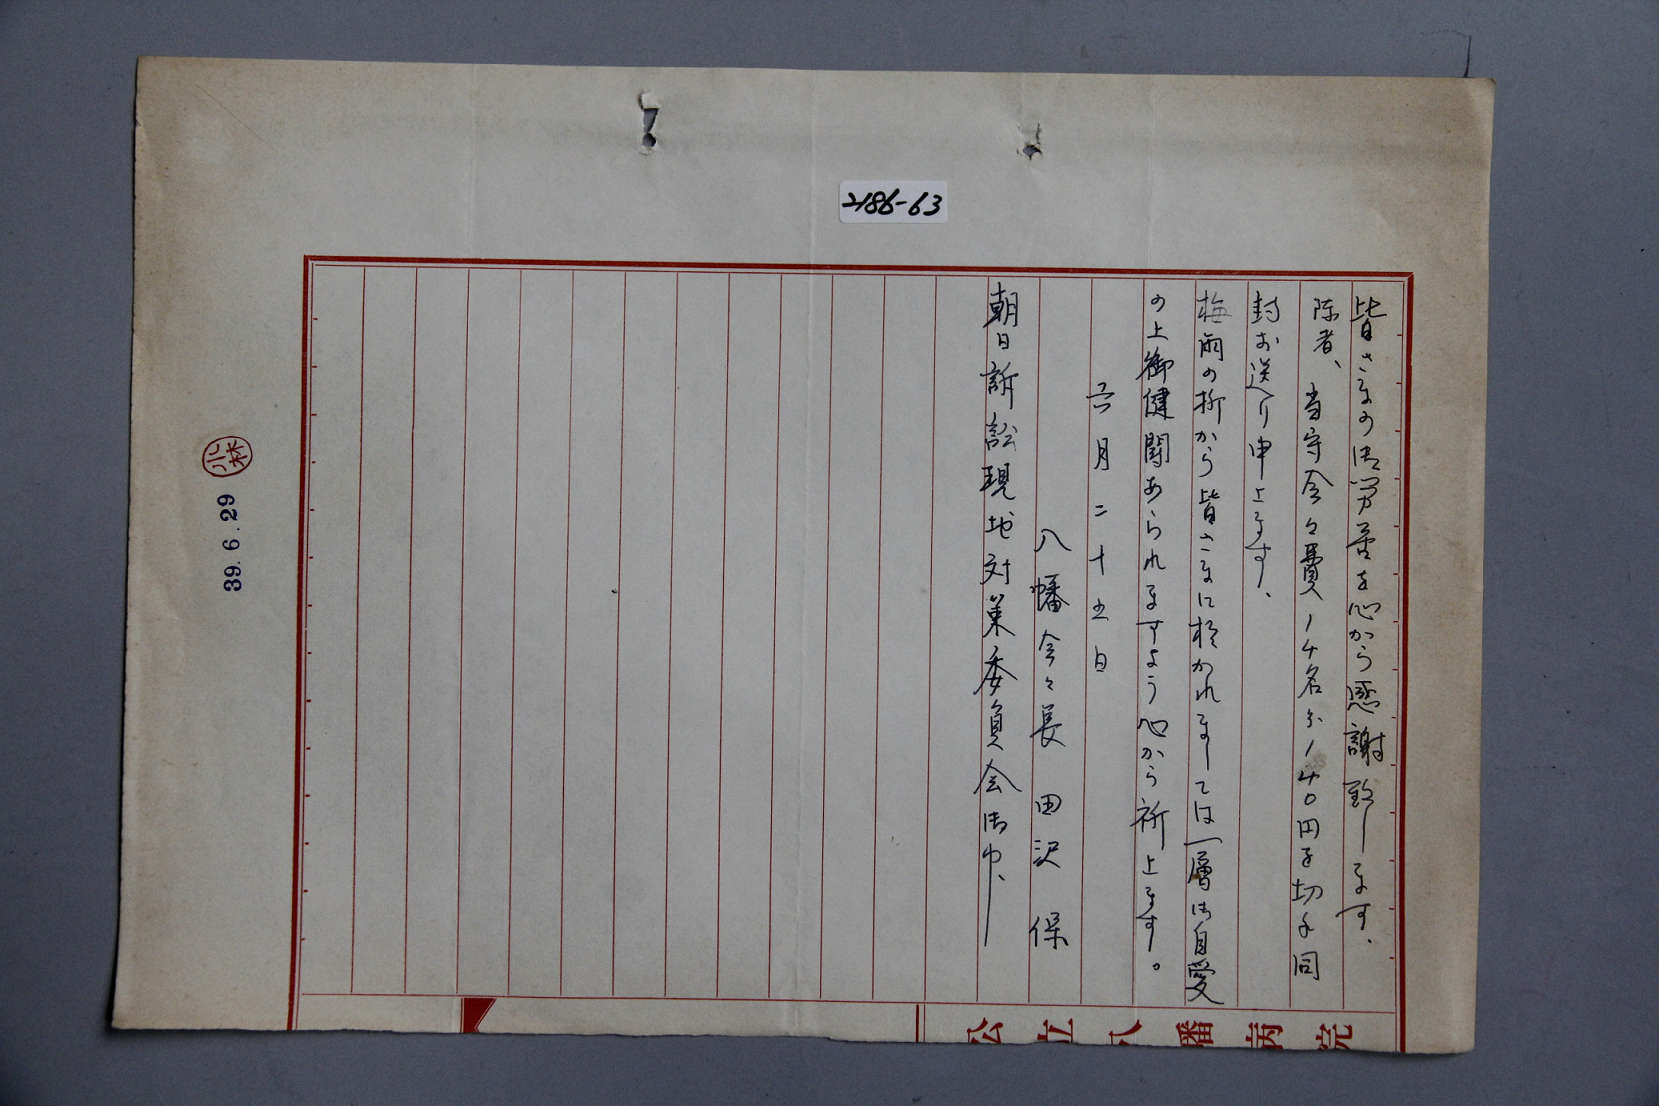 2186-63
皆さまの御労苦を心から感謝致します、
陳者、当守会々費14名分140円を切手同
封お送り申上ます、
梅雨の折から皆さまに於かれましては一層御自愛
の上御健闘あられますよう心から祈上ます。
六月二十五日
八幡会々長 田沢 保
朝日訴訟現地対策委員会御中、
小林
39.6.29
公立八幡病院